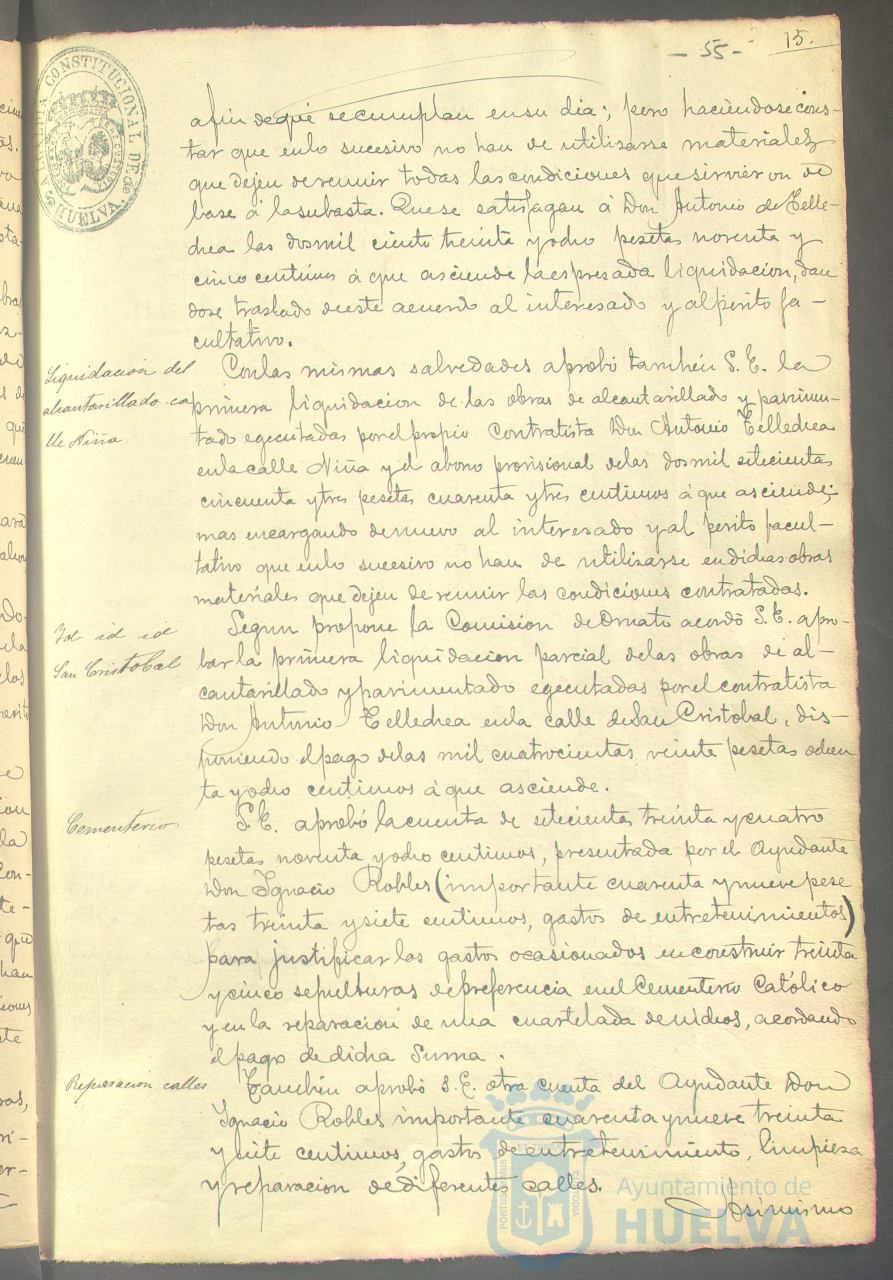 - 55 -
15.
ALCALDIA CONSTITUCIONAL DE
HUELVA
afin deque secumplan ensu dia; pero haciendose cons-
tar que enlo sucesivo no han de utilizarse materiales
que dejen dereunir todas lascondiciones quesirvieron de
base á lasubasta. Quese satisfagan á Don Antonio deTelle-
chea las dosmil ciento treinta yocho pesetas noventa y
cinco centimos á que asciende laespresada liquidacion, dan
dose traslado deeste acuerdo al interesado y alperito fa-
cultativo.
Liquidación del
alcantarillado ca
lle Niña
Conlas mismas salvedades aprobó también S. E. la
primera liquidacion de las obras de alcantarillado y pavimen-
tado egecutadas porelpropio contratista Don Antonio Tellechea
enlacalle Niña y el abono provisional delas dosmil setecientas
cincuenta ytres pesetas cuarenta ytres centimos á que asciende;
mas encargando denuevo al interesado yal perito facul-
tativo que enlo sucesivo no han de utilizarse endichas obras
materiales que dejen de reunir las condiciones contratadas.
Id id id
San Cristobal
Segun propone la Comision deOrnato acordó S. E. apro-
bar la primera liquidacion parcial delas obras de al-
cantarillado ypavimentado egecutadas porelcontratista
Don Antonio Tellechea enla calle deSan Cristobal, dis-
poniendo elpago delas mil cuatrocientas veinte pesetas ochen
ta yocho centimos á que asciende.
Cementerio
S. E. aprobó lacuenta de setecientas treinta ycuatro
pesetas noventa yocho centimos, presentada por el Ayudante
Don Ignacio Robles (importante cuarenta ynueve pese
tas treinta ysiete centimos, gastos de entretenimientos)
para justificar los gastos ocasionados enconstruir treinta
ycinco sepulturas depreferencia enel Cementerio Católico
yen la reparación de una cuartelada denichos, acordando
elpago de dicha suma.
Reparacion calles
Tambien aprobó S. E. otra cuenta del Ayudante Don
Ignacio Robles importante cuarenta ynueve treinta
ysiete centimos, gastos de entretenimiento, limpieza
yreparacion de diferentes calles.
Asimismo
Ayuntamiento de
HUELVA